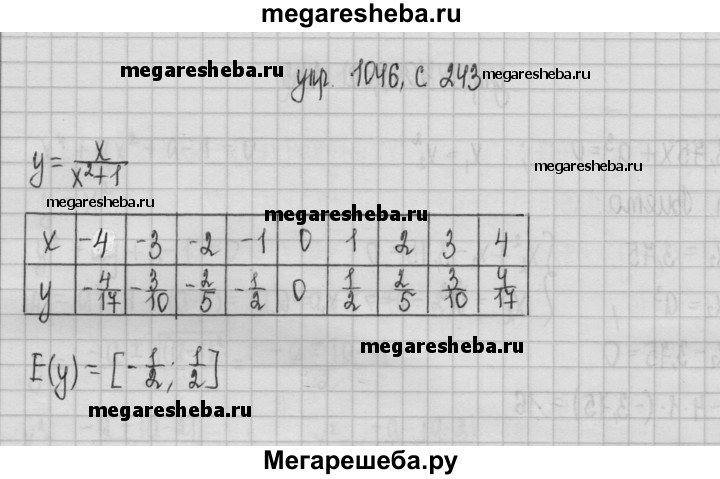 megaresheba.ru
megaresheba.ru упр. 1046, с 243 megaresheba.ru
y = x/(x²+1) megaresheba.ru
megaresheba.ru megaresheba.ru
x -4 -3 -2 -1 0 1 2 3 4
y -4/17 -3/10 -2/5 -1/2 0 1/2 2/5 3/10 4/17
megaresheba.ru
E(y) = [-1/2; 1/2]
megaresheba.ru
Мегарешеба.ру